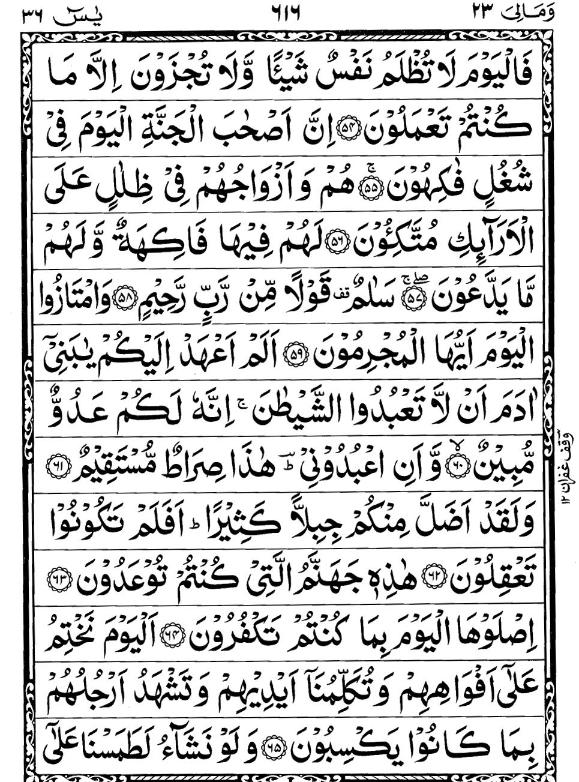 وَمَالِىَ ٢٣ ٦١٦ يٰسٓ ٣٦
فَالْيَوْمَ لَا تُظْلَمُ نَفْسٌ شَيْئًا وَّلَا تُجْزَوْنَ اِلَّا مَا
كُنْتُمْ تَعْمَلُوْنَ ﴿٥٤﴾ اِنَّ اَصْحٰبَ الْجَنَّةِ الْيَوْمَ فِىْ
شُغُلٍ فٰكِهُوْنَ ۚ ﴿٥٥﴾ هُمْ وَاَزْوَاجُهُمْ فِىْ ظِلٰلٍ عَلَى
الْاَرَآئِكِ مُتَّكِـُٔوْنَ ﴿٥٦﴾ لَهُمْ فِيْهَا فَاكِهَةٌ وَّلَهُمْ
مَّا يَدَّعُوْنَ ۖۚ ﴿٥٧﴾ سَلٰمٌ قف قَوْلًا مِّنْ رَّبٍّ رَّحِيْمٍ ﴿٥٨﴾ وَامْتَازُوا
الْيَوْمَ اَيُّهَا الْمُجْرِمُوْنَ ﴿٥٩﴾ اَلَمْ اَعْهَدْ اِلَيْكُمْ يٰبَنِىْٓ
اٰدَمَ اَنْ لَّا تَعْبُدُوا الشَّيْطٰنَ ۚ اِنَّهٗ لَكُمْ عَدُوٌّ
مُّبِيْنٌ ۙ ﴿٦٠﴾ وَّاَنِ اعْبُدُوْنِىْ ؕ هٰذَا صِرَاطٌ مُّسْتَقِيْمٌ ﴿٦١﴾
وَلَقَدْ اَضَلَّ مِنْكُمْ جِبِلًّا كَثِيْرًا ؕ اَفَلَمْ تَكُوْنُوْا
تَعْقِلُوْنَ ﴿٦٢﴾ هٰذِهٖ جَهَنَّمُ الَّتِىْ كُنْتُمْ تُوْعَدُوْنَ ﴿٦٣﴾
اِصْلَوْهَا الْيَوْمَ بِمَا كُنْتُمْ تَكْفُرُوْنَ ﴿٦٤﴾ اَلْيَوْمَ نَخْتِمُ
عَلٰٓى اَفْوَاهِهِمْ وَتُكَلِّمُنَآ اَيْدِيْهِمْ وَتَشْهَدُ اَرْجُلُهُمْ
بِمَا كَانُوْا يَكْسِبُوْنَ ﴿٦٥﴾ وَلَوْ نَشَآءُ لَطَمَسْنَا عَلٰٓى
وقف غفران ١٢